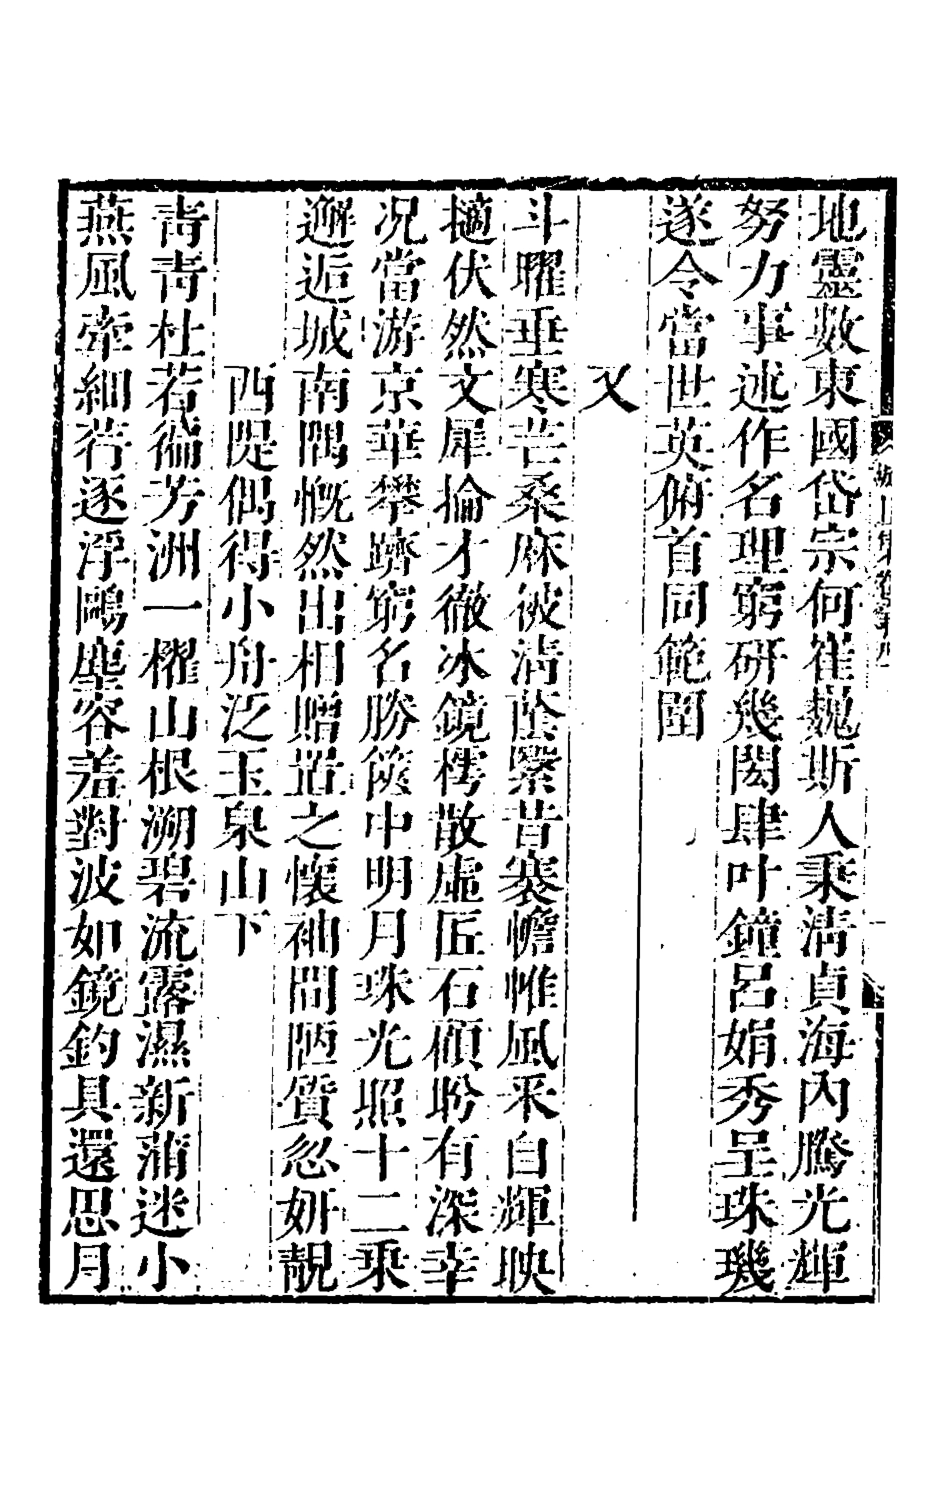 地靈數東國岱宗何崔巍斯人秉淸貞海內騰光輝
努力事述作名理窮研幾閎肆叶鐘呂娟秀呈珠璣
遂令當世英俯首同範圍
又
斗曜垂寒芒桑麻被淸蔭緊昔褰幨帷風采自輝映
擿伏然文犀掄才徹冰鏡樗散虛匠石頋盻有深幸
况當游京華攀躋窮名勝篋中明月珠光照十二乘
邂逅城南隅慨然出相贈置之懷袖間陋質忽妍靚
西隄偶得小舟泛玉泉山下
靑靑杜若徧芳洲一櫂山根溯碧流露濕新蒲迷小
燕風牽細荇逐浮鷗塵容羞對波如鏡釣具還思月